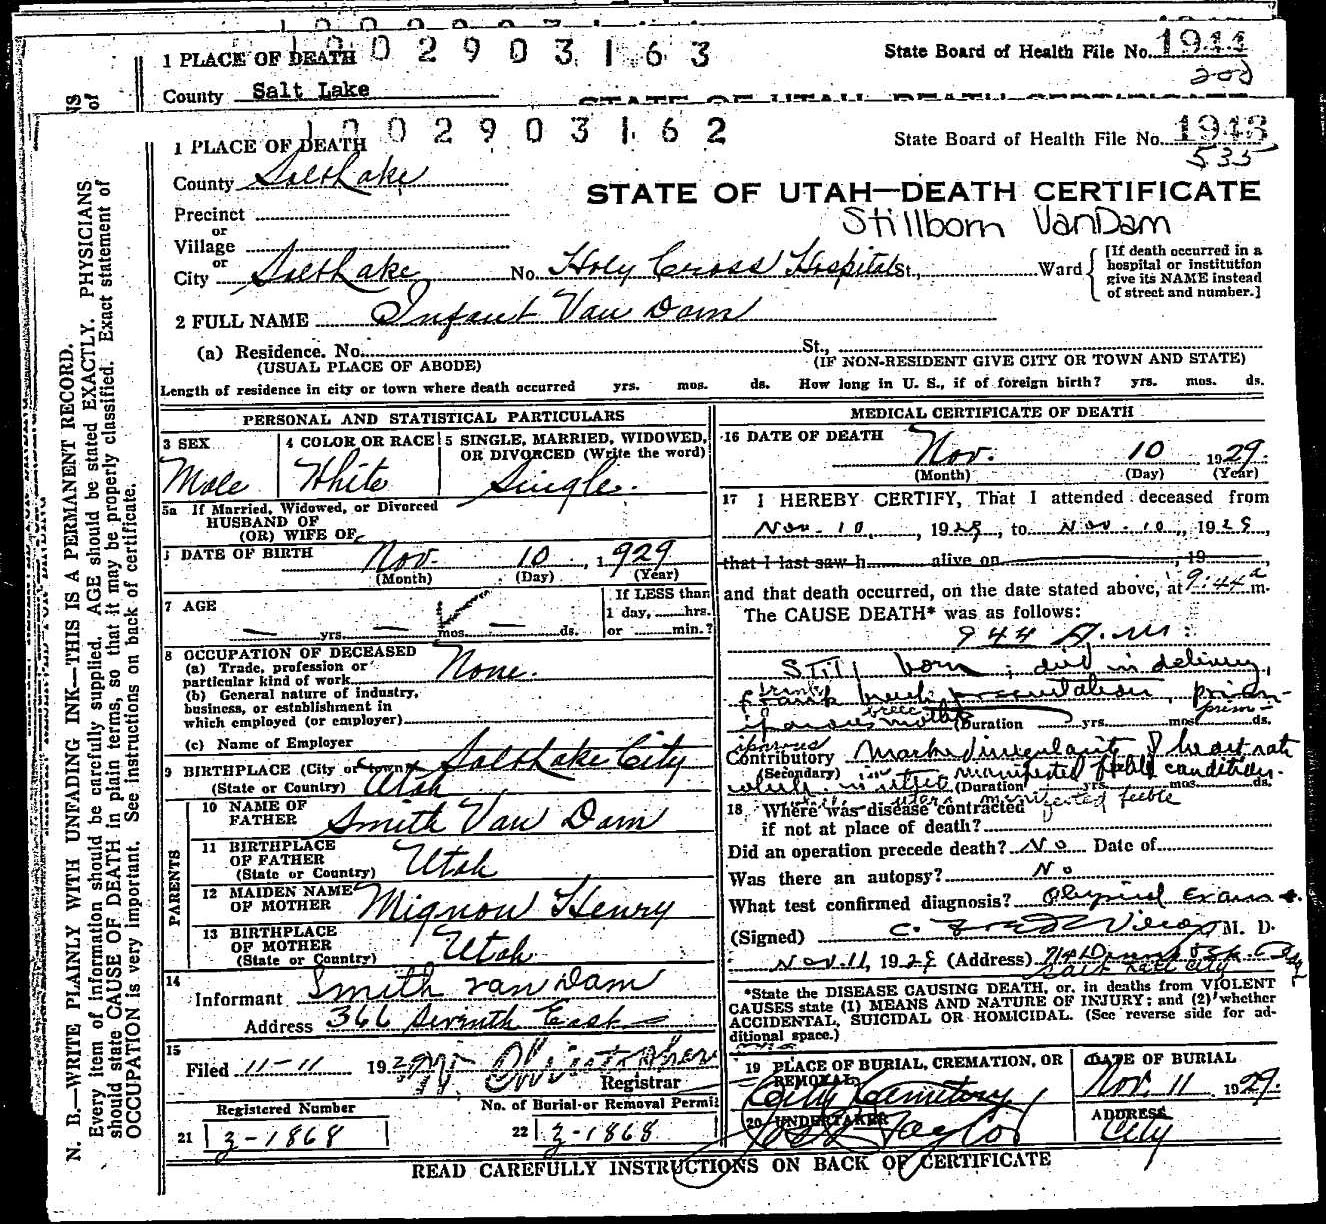 1 0 0 2 9 0 3 1 6 3
State Board of Health File No. 1944
202
1 PLACE OF DEATH
County Salt Lake
STATE OF UTAH—DEATH CERTIFICATE
1 0 0 2 9 0 3 1 6 2
State Board of Health File No. 1943
535
1 PLACE OF DEATH
County Salt Lake
STATE OF UTAH—DEATH CERTIFICATE
Precinct
Stillborn VanDam
or
Village
or
City Salt Lake No. Holy Cross Hospital St., Ward
[If death occurred in a hospital or institution give its NAME instead of street and number.]
2 FULL NAME Infant Van Dam
(a) Residence. No. St.,
(USUAL PLACE OF ABODE) (IF NON-RESIDENT GIVE CITY OR TOWN AND STATE)
Length of residence in city or town where death occurred yrs. mos. ds. How long in U. S., if of foreign birth? yrs. mos. ds.
PERSONAL AND STATISTICAL PARTICULARS
3 SEX 4 COLOR OR RACE 5 SINGLE, MARRIED, WIDOWED, OR DIVORCED (Write the word)
Male White Single.
5a If Married, Widowed, or Divorced
HUSBAND OF
(OR) WIFE OF
DATE OF BIRTH Nov. 10, 1929
(Month) (Day) (Year)
7 AGE — yrs. — mos. — ds.
If LESS than
1 day, hrs.
or min.?
8 OCCUPATION OF DECEASED
(a) Trade, profession or
particular kind of work None.
(b) General nature of industry,
business, or establishment in
which employed (or employer)
(c) Name of Employer
9 BIRTHPLACE (City or town) Salt Lake City
(State or Country) Utah
PARENTS
10 NAME OF FATHER Smith Van Dam
11 BIRTHPLACE OF FATHER Utah
(State or Country)
12 MAIDEN NAME OF MOTHER Mignon Henry
13 BIRTHPLACE OF MOTHER Utah
(State or Country)
14
Informant Smith Van Dam
Address 366 Seventh East
15
Filed 11-11 1929
Registrar
Registered Number No. of Burial or Removal Permit
21 z-1868 22 z-1868
MEDICAL CERTIFICATE OF DEATH
16 DATE OF DEATH
Nov. 10 1929.
(Month) (Day) (Year)
17 I HEREBY CERTIFY, That I attended deceased from
Nov. 10, 1929, to Nov. 10, 1929
that I last saw h alive on , 19
and that death occurred, on the date stated above, at 9:44 a m.
The CAUSE DEATH* was as follows:
944 A.M.
Still born; died in delivery,
frank breech presentation,
(Duration yrs. mos. ds.
Contributory Marked irregularity of heart rate
(Secondary)
manifested feeble condition.
(Duration yrs. mos. ds.
manifested feeble
18 Where was disease contracted
if not at place of death?
Did an operation precede death? No Date of
Was there an autopsy? No
What test confirmed diagnosis?
(Signed) M. D.
Nov. 11, 1929 (Address)
Salt Lake City
*State the DISEASE CAUSING DEATH, or, in deaths from VIOLENT
CAUSES state (1) MEANS AND NATURE OF INJURY; and (2) whether
ACCIDENTAL, SUICIDAL OR HOMICIDAL. (See reverse side for additional space.)
19 PLACE OF BURIAL, CREMATION, OR REMOVAL DATE OF BURIAL
City Cemetery Nov. 11 1929.
20 UNDERTAKER ADDRESS
Taylor City
READ CAREFULLY INSTRUCTIONS ON BACK OF CERTIFICATE
N. B.—WRITE PLAINLY WITH UNFADING INK—THIS IS A PERMANENT RECORD.
Every item of information should be carefully supplied. AGE should be stated EXACTLY. PHYSICIANS
should state CAUSE OF DEATH in plain terms, so that it may be properly classified. Exact statement of
OCCUPATION is very important. See instructions on back of certificate.